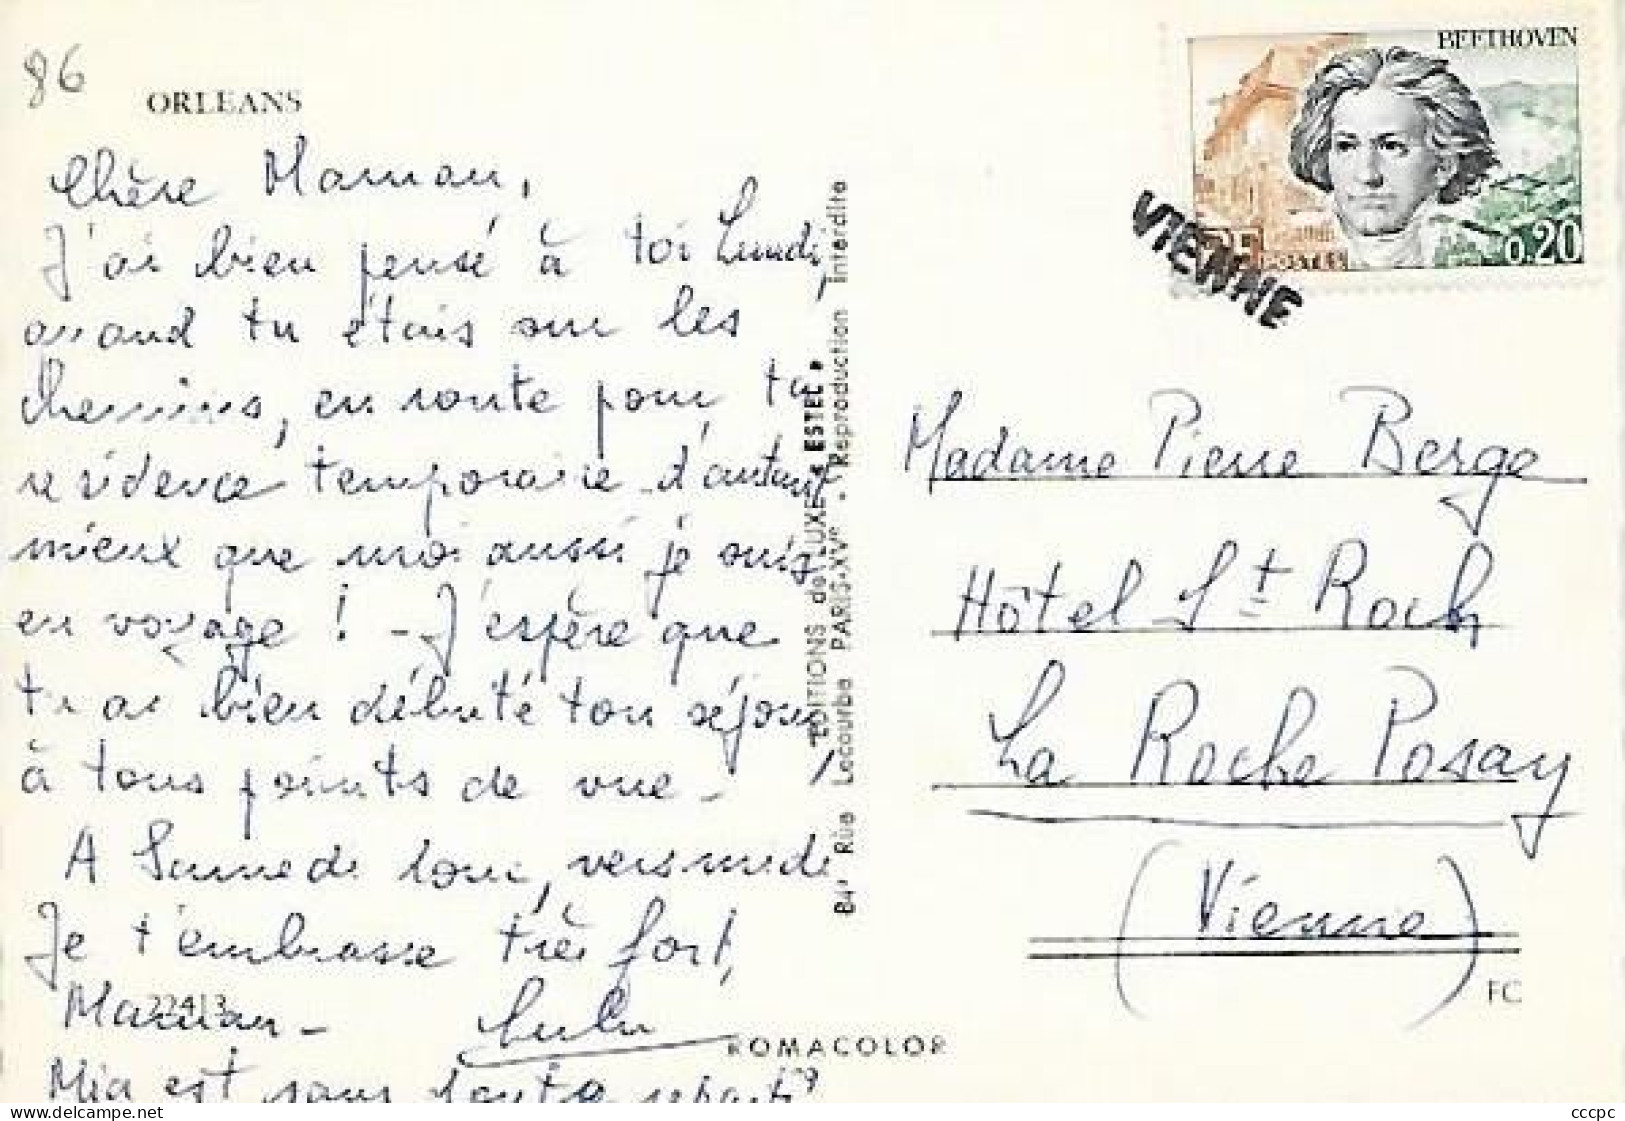 86
ORLEANS
Chère Maman,
J'ai bien pensé à toi Lundi,
quand tu étais sur les
Chemins, en route pour ta
résidence temporaire - d'autant
mieux que moi aussi je suis
en voyage ! - J'espère que
tu as bien débuté ton séjour,
à tous points de vue -
A Samedi soir, vers midi
Je t'embrasse très fort,
Maman -
22413
Lulu
Mia est sans doute repartie
EDITIONS de LUXE « ESTEL »
84, Rue Lecourbe PARIS-XVe - Reproduction Interdite
ROMACOLOR
BEETHOVEN
RF
POSTES
0.20
VIENNE
Madame Pierre Berge
Hôtel St Roch
La Roche Posay
(Vienne)
FC
cccpc